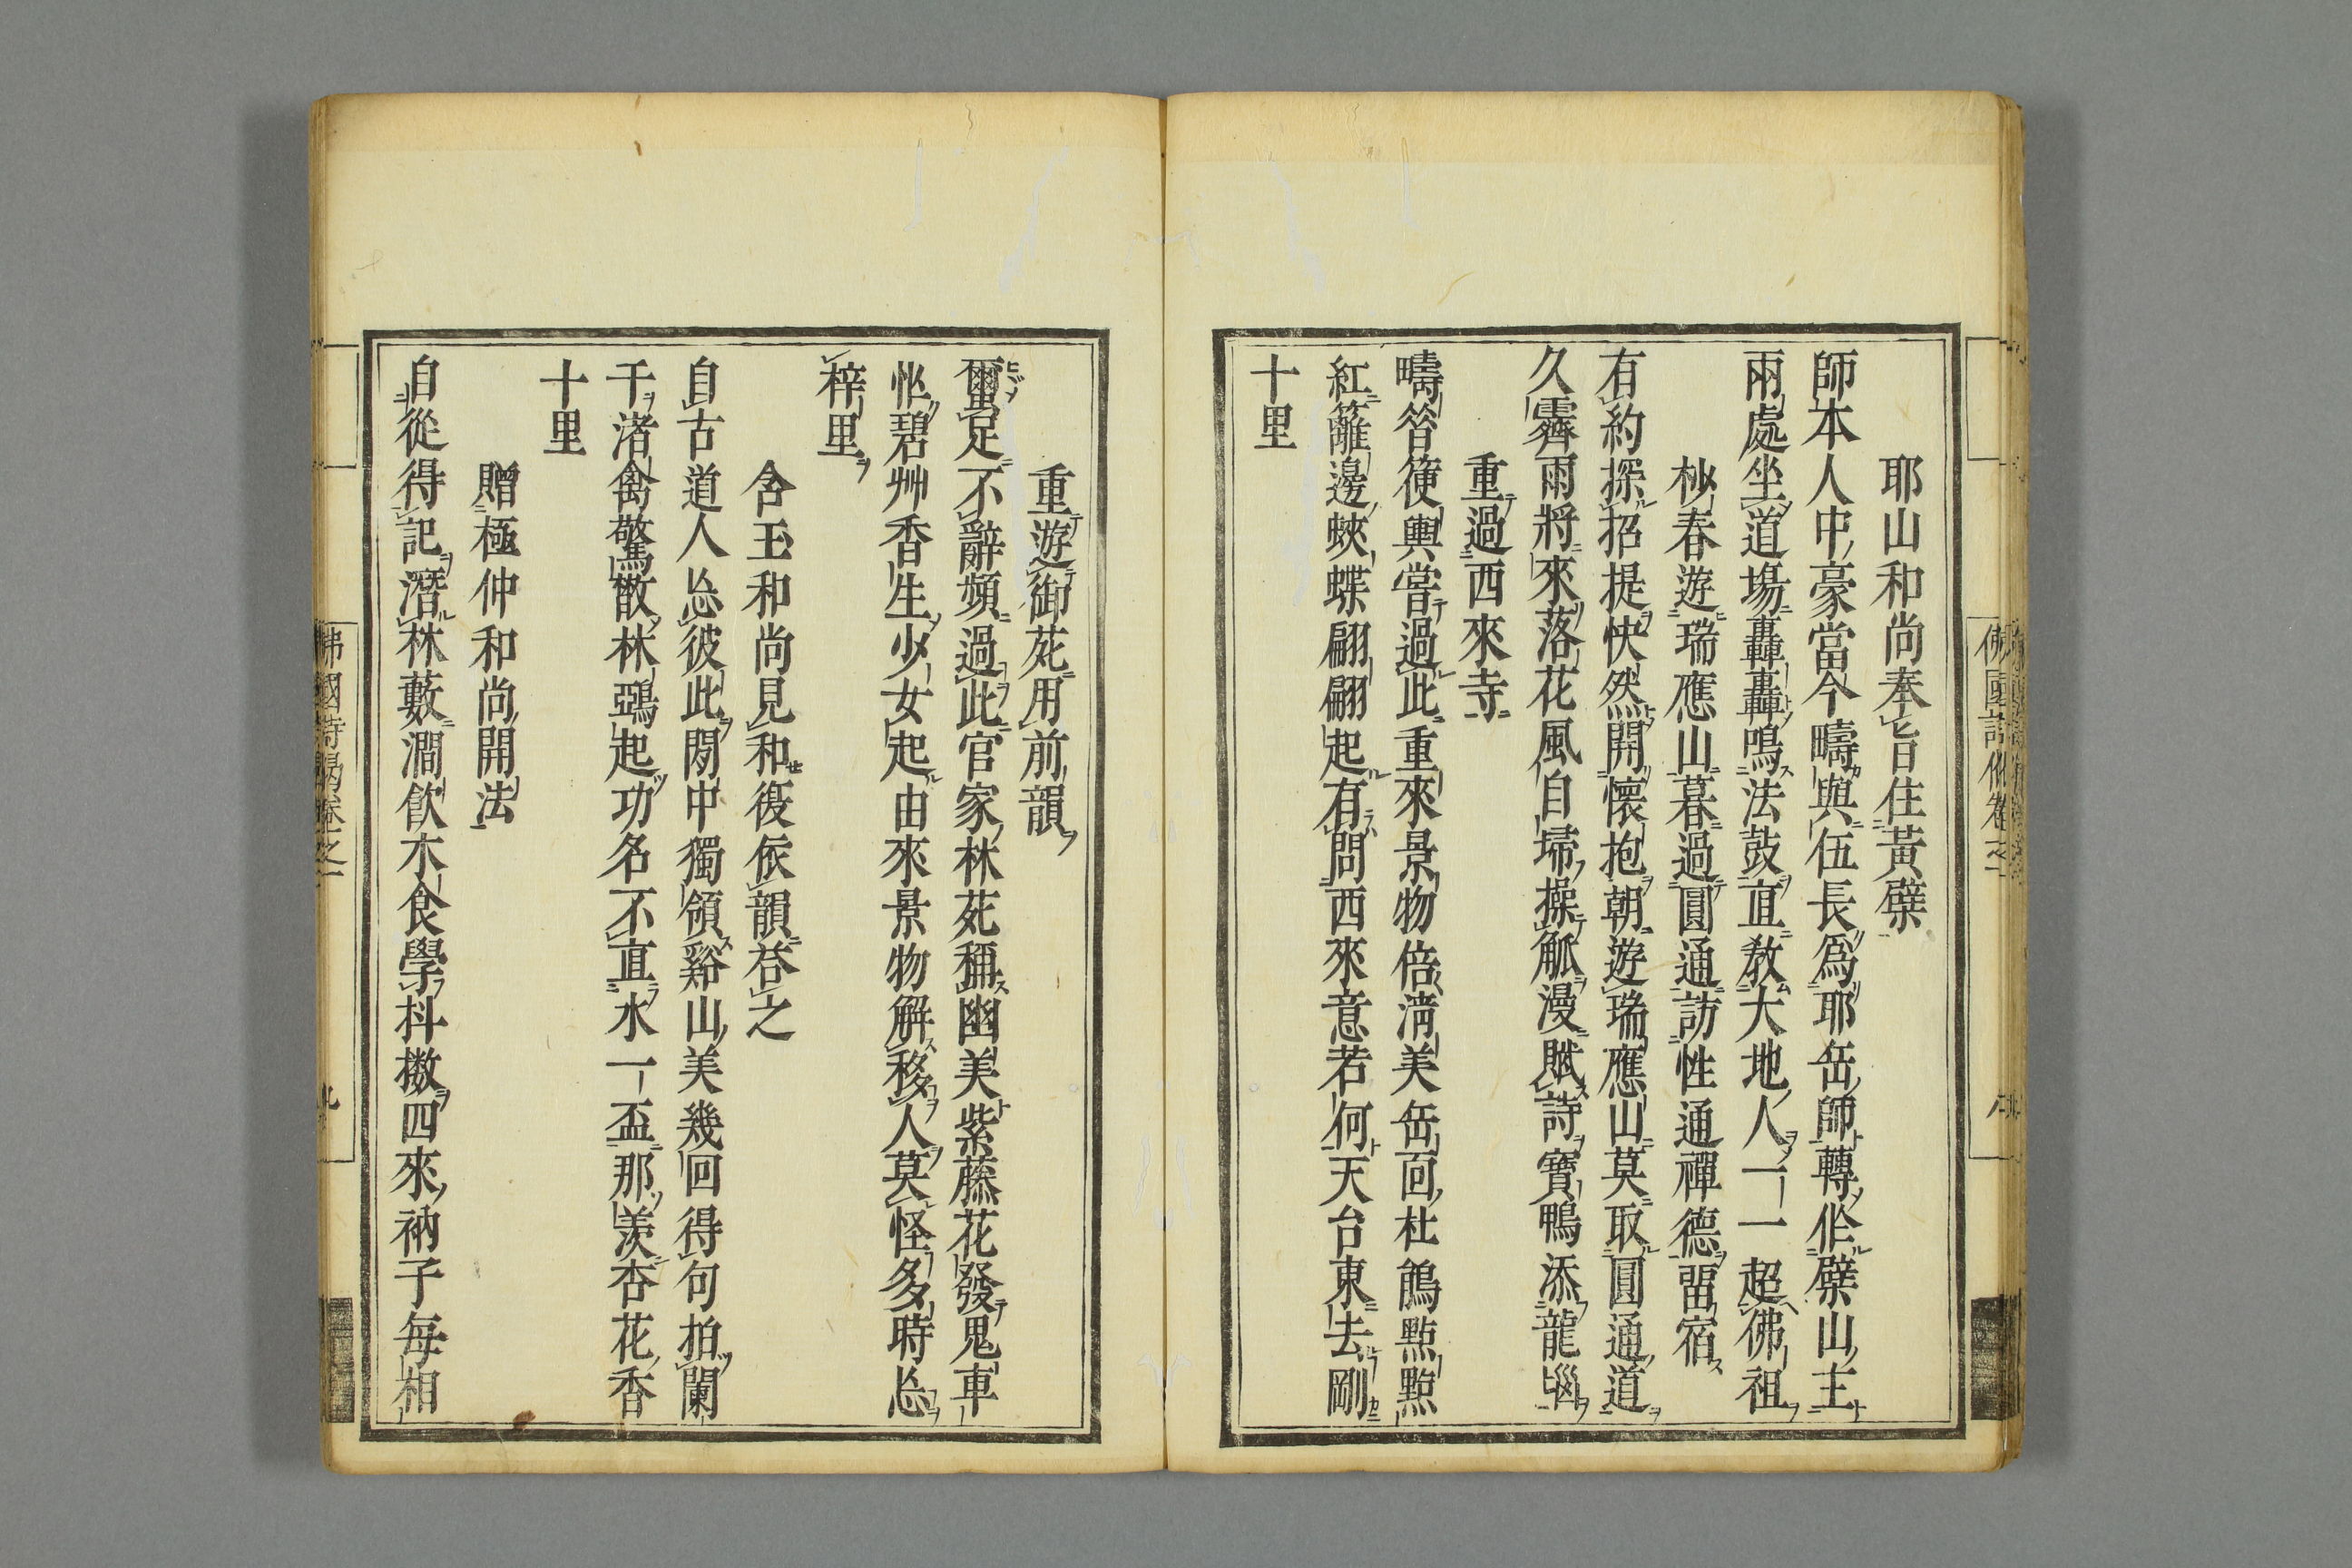 耶山和尚奉旨住黃檗
師本人中豪當今疇與伍長爲耶岳師轉作檗山主
兩處坐道場轟轟鳴法鼓直教大地人一一超佛祖
杪春遊瑞應山暮過圓通訪性通禪德畱宿
有約探招提快然開懷抱朝遊瑞應山莫取圓通道
久霽雨將來落花風自埽操觚漫賦詩寶鴨添龍
重過西來寺
疇昔箯輿嘗過此重來景物倍淸美缶囘杜鵑點點
紅籬邊蛺蝶翩翩起有問西來意若何天台東去剛
十里
重遊御苑用前韻
爾足不辭頻過此官家林苑稱幽美紫藤花發鬼車
恠碧艸香生少女起由來景物解移人莫怪多時忘
梓里
含玉和尚見和復依韻荅之
自古道人忘彼此閒中獨領谿山美幾回得句拍闌
干渚禽驚散林鵶起功名不直水一盃那羨杏花香
十里
贈極仲和尚開法
自從得記潛林藪澗飮木食學抖擻四來衲子每相
佛國詩偈卷之一